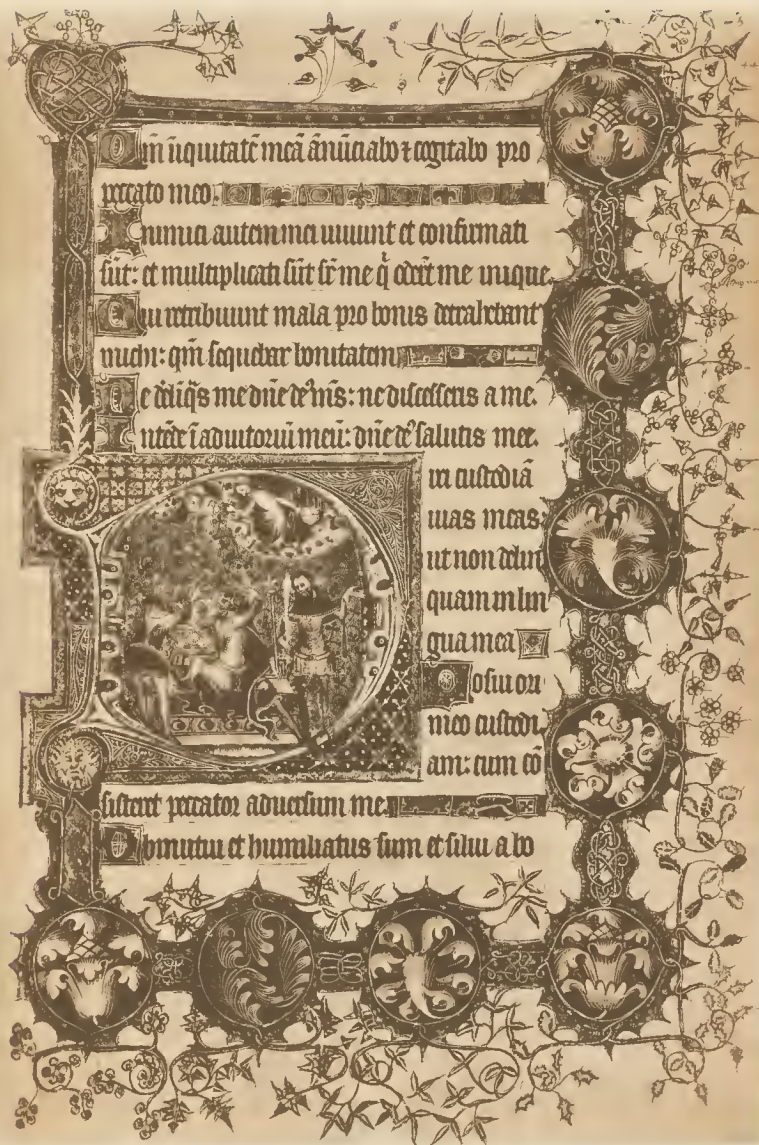 Qm̄ iniquitatē meā ānūciabo ⁊ cogitabo pro
peccato meo.
Inimici autem mei uiuunt et confirmati
sūt: et multiplicati sūt sr̄ me q̄ oderūt me inique.
Qui retribuunt mala pro bonis detrahebant
michi: qm̄ sequebar bonitatem
Ne dēliq̄s me dn̄e deꝰ ms̄: ne discesseris a me.
Intēde ī adiutoriū meū: dn̄e deꝰ salutis mee.
Dixi custodiā
uias meas:
ut non delin
quam in lin
gua mea
Posui ori
meo custodi
am: cum cō
sisteret peccator aduersum me.
Obmutui et humiliatus sum et silui a bo